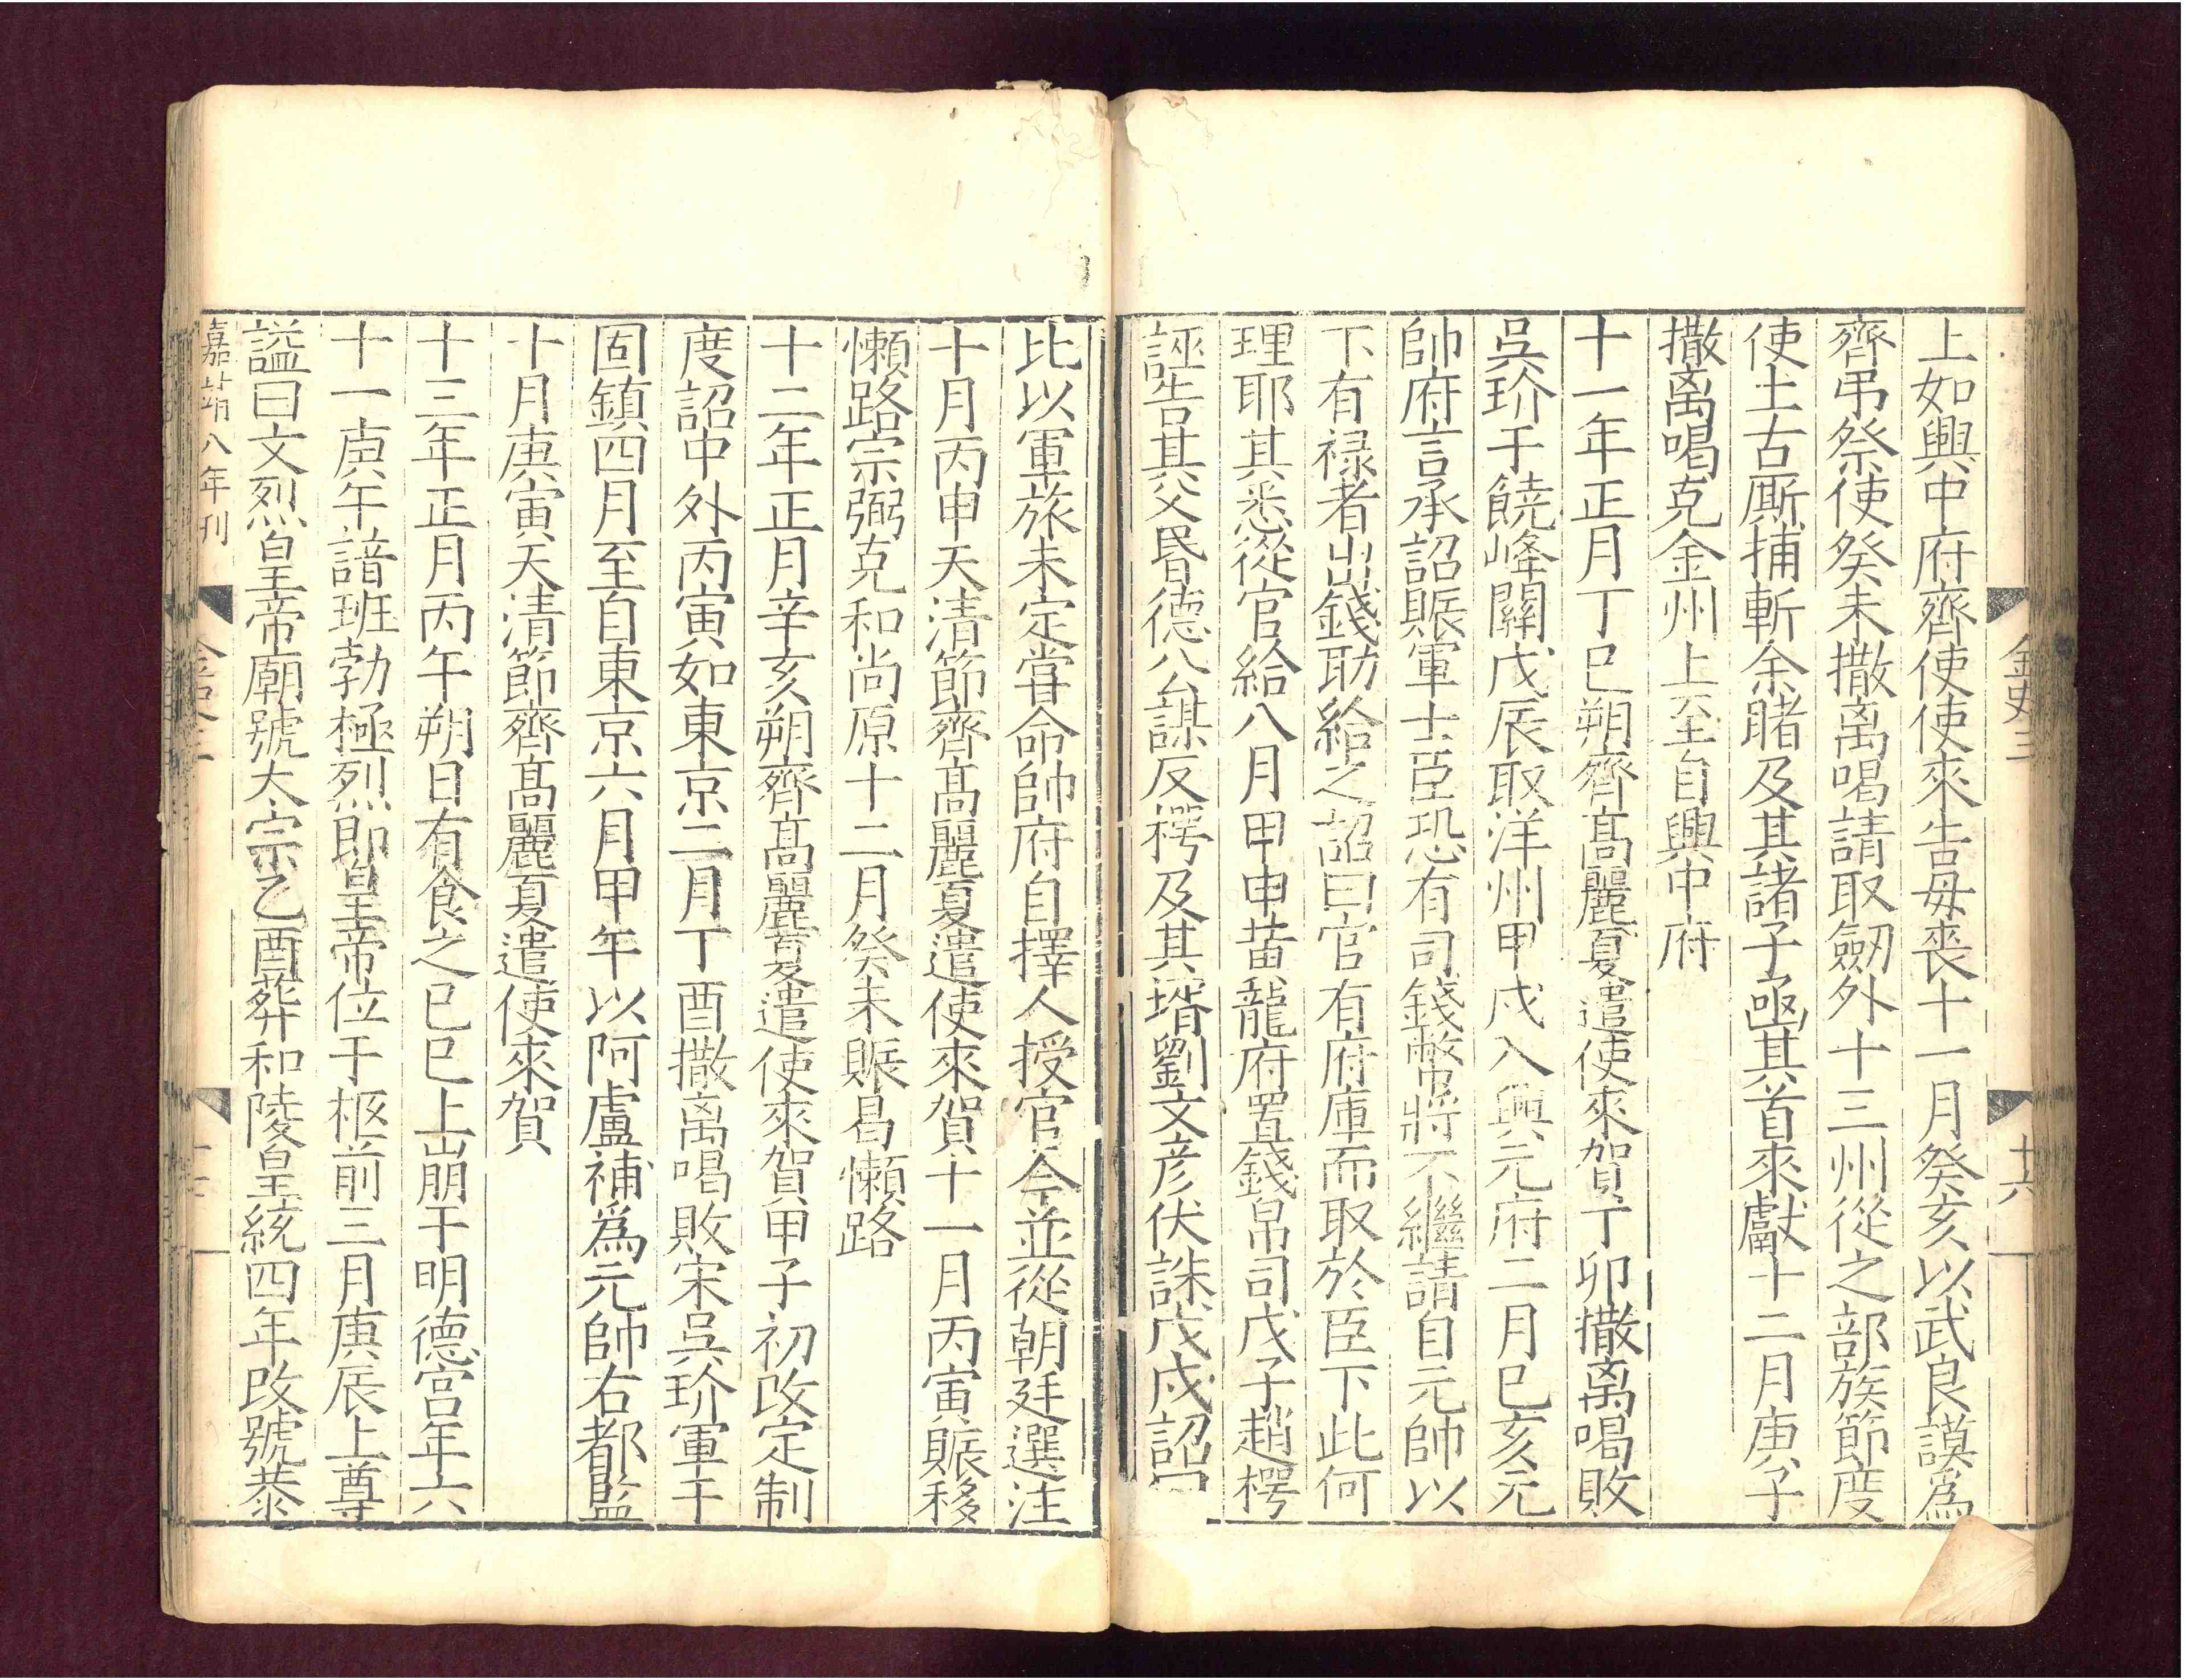 金史三
十六
上如興中府齊使使來告母喪十一月癸亥以武良謨爲
齊弔祭使癸未撒离喝請取劒外十三州從之部族節度
使土古厮捕斬余睹及其諸子函其首來獻十二月庚子
撒离喝克金州上至自興中府
十一年正月丁巳朔齊髙麗夏遣使來賀丁卯撒离喝敗
吳玠于饒峰關戊辰取洋州甲戌入興元府二月己亥元
帥府言承詔賑軍士臣恐有司錢幣將不繼請自元帥以
下有禄者出錢助給之詔曰官有府庫而取於臣下此何
理耶其悉從官給八月甲申黃龍府置錢帛司戊子趙楞
誣告其父昏德公謀反楞及其壻劉文彦伏誅戊戌詔曰
比以軍旅未定嘗命帥府自擇人授官今並從朝廷選注
十月丙申天清節齊髙麗夏遣使來賀十一月丙寅賑移
懶路宗弼克和尚原十二月癸未賑曷懶路
十二年正月辛亥朔齊髙麗夏遣使來賀甲子初改定制
度詔中外丙寅如東京二月丁酉撒离喝敗宋吳玠軍于
固鎮四月至自東京六月甲午以阿盧補爲元帥右都監
十月庚寅天清節齊髙麗夏遣使來賀
十三年正月丙午朔日有食之己巳上崩于明德宫年六
十一庚午諳班勃極烈即皇帝位于柩前三月庚辰上尊
謚曰文烈皇帝廟號太宗乙酉葬和陵皇統四年改號恭
嘉靖八年刊